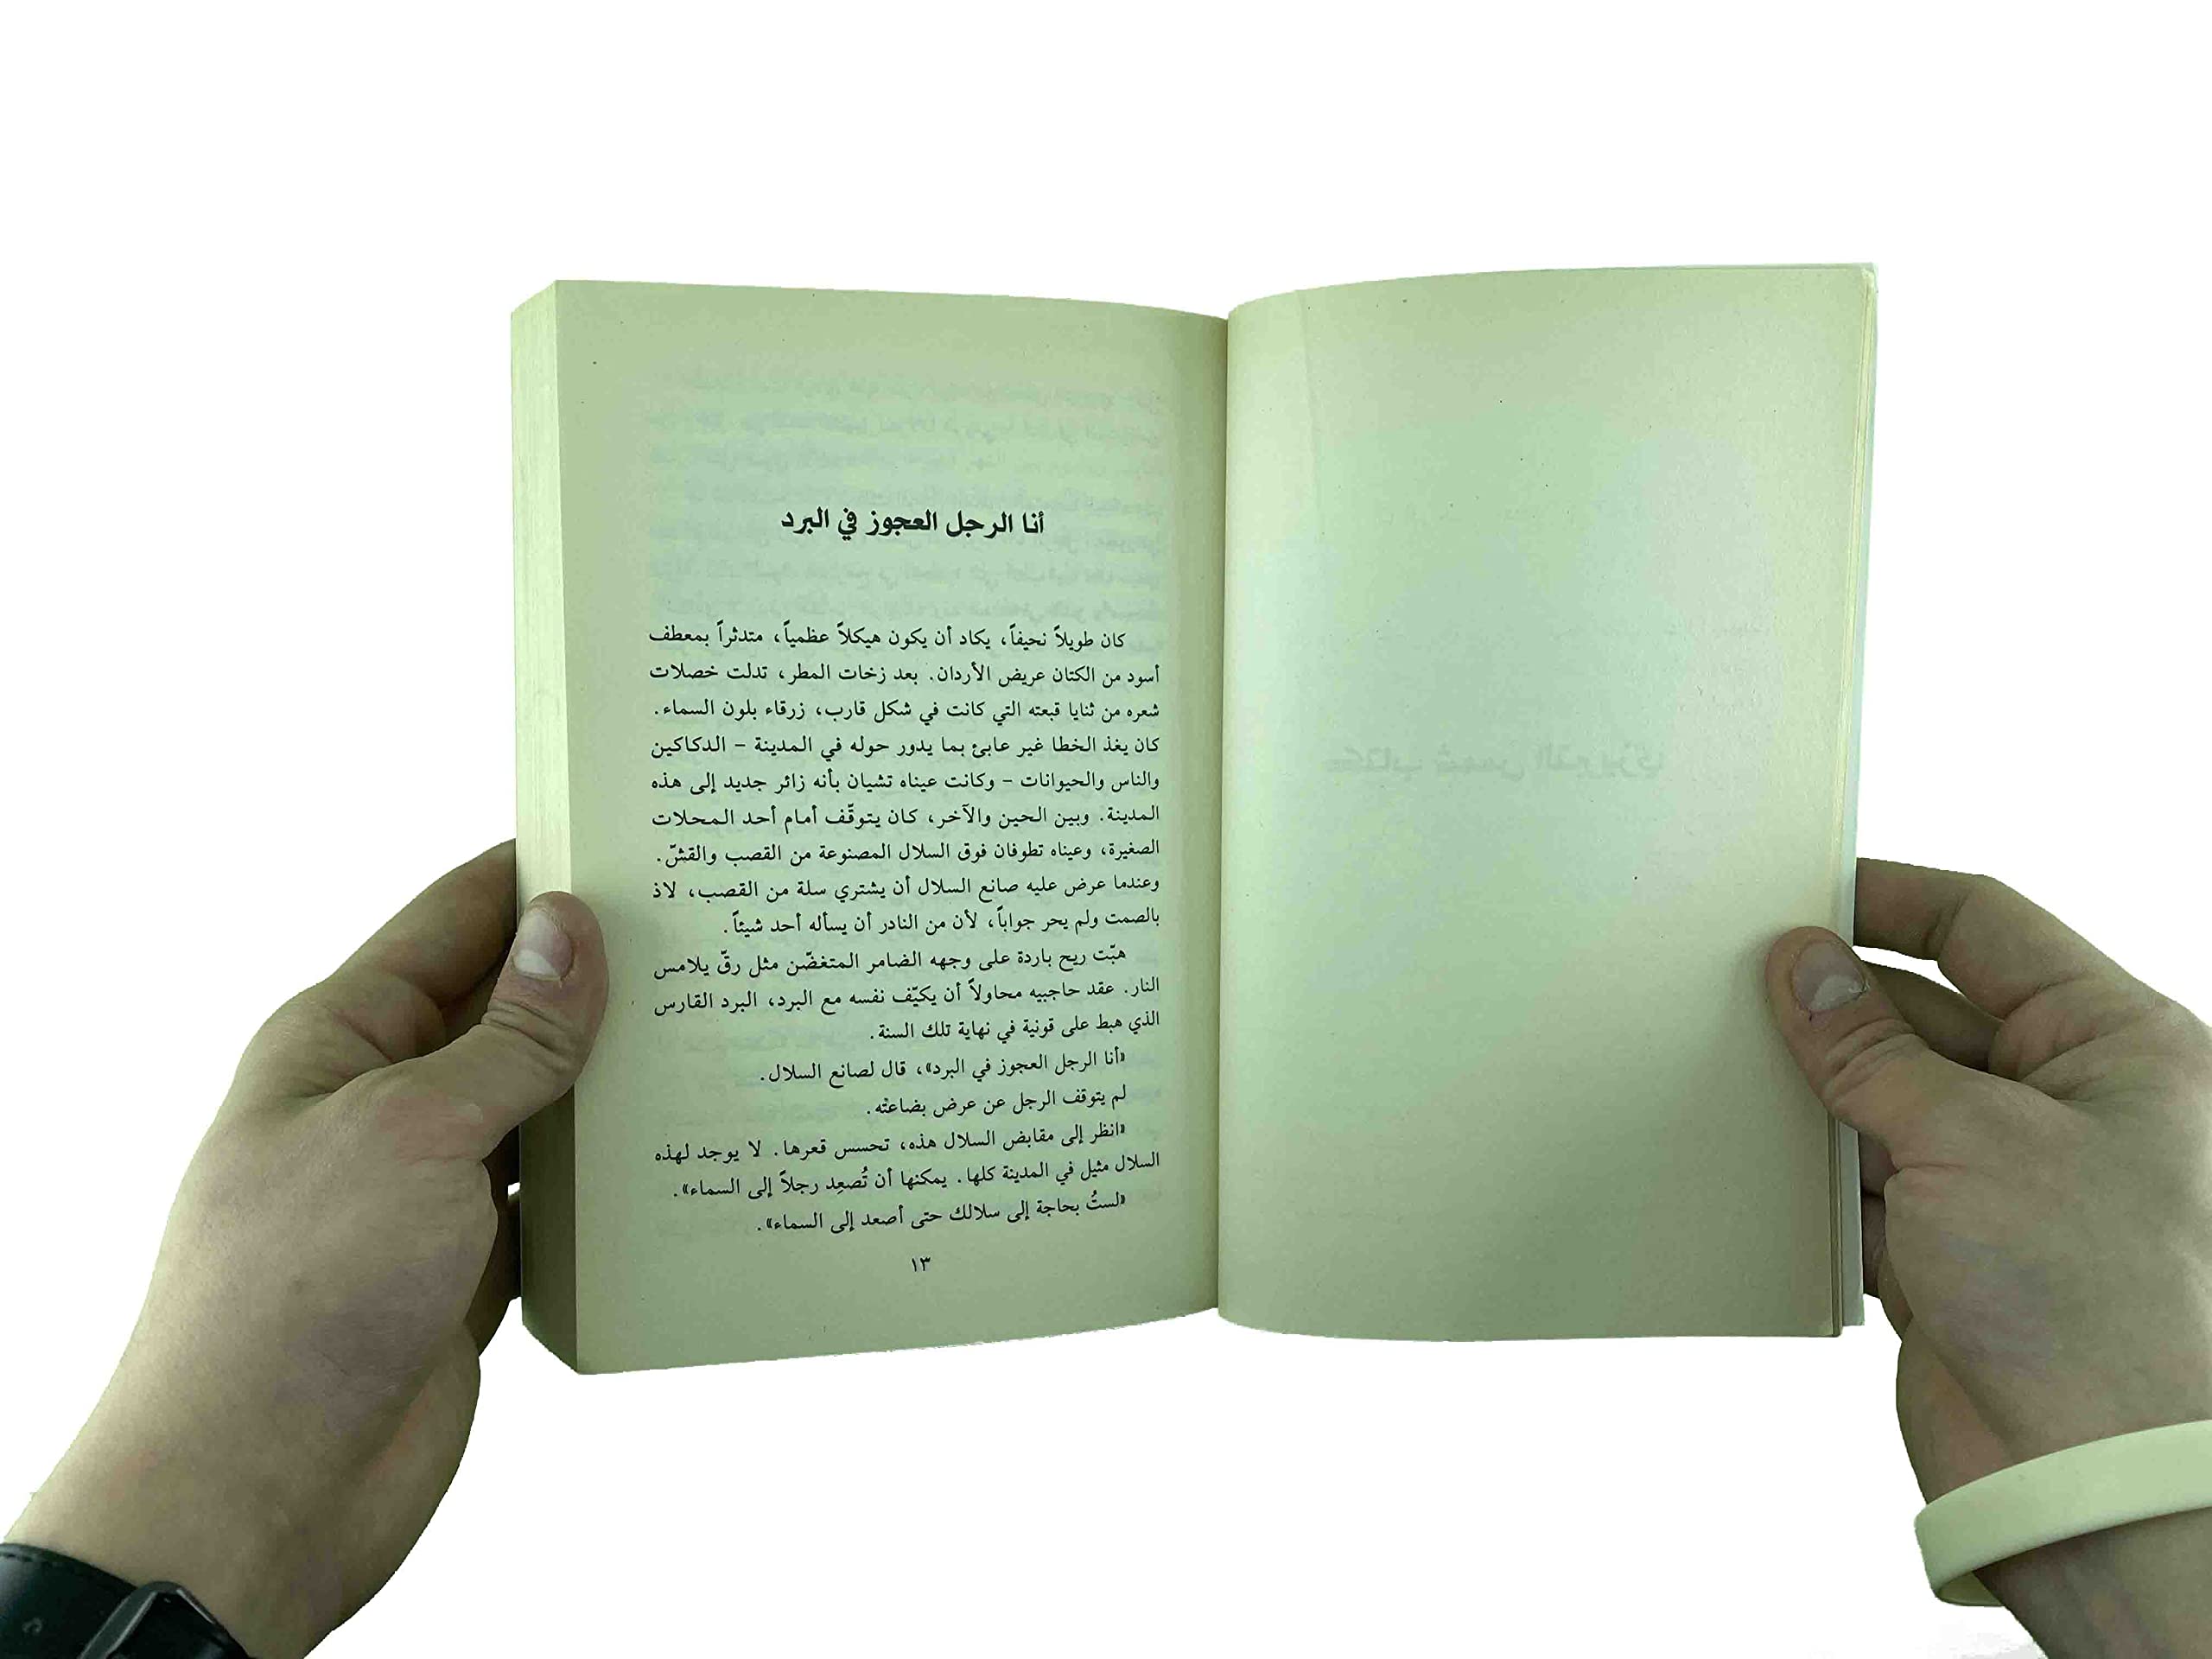 أنا الرجل العجوز في البرد
كان طويلاً نحيفاً، يكاد أن يكون هيكلاً عظمياً، متدثراً بمعطف
أسود من الكتان عريض الأردان. بعد زخات المطر، تدلت خصلات
شعره من ثنايا قبعته التي كانت في شكل قارب، زرقاء بلون السماء.
كان يغذ الخطا غير عابئ بما يدور حوله في المدينة – الدكاكين
والناس والحيوانات – وكانت عيناه تشيان بأنه زائر جديد إلى هذه
المدينة. وبين الحين والآخر، كان يتوقّف أمام أحد المحلات
الصغيرة، وعيناه تطوفان فوق السلال المصنوعة من القصب والقشّ.
وعندما عرض عليه صانع السلال أن يشتري سلة من القصب، لاذ
بالصمت ولم يحر جواباً، لأن من النادر أن يسأله أحد شيئاً.
هبّت ريح باردة على وجهه الضامر المتغضّن مثل رقّ يلامس
النار. عقد حاجبيه محاولاً أن يكيّف نفسه مع البرد، البرد القارس
الذي هبط على قونية في نهاية تلك السنة.
«أنا الرجل العجوز في البرد»، قال لصانع السلال.
لم يتوقف الرجل عن عرض بضاعته.
«انظر إلى مقابض السلال هذه، تحسس قعرها. لا يوجد لهذه
السلال مثيل في المدينة كلها. يمكنها أن تُصعِد رجلاً إلى السماء».
«لستُ بحاجة إلى سلالك حتى أصعد إلى السماء».
١٣